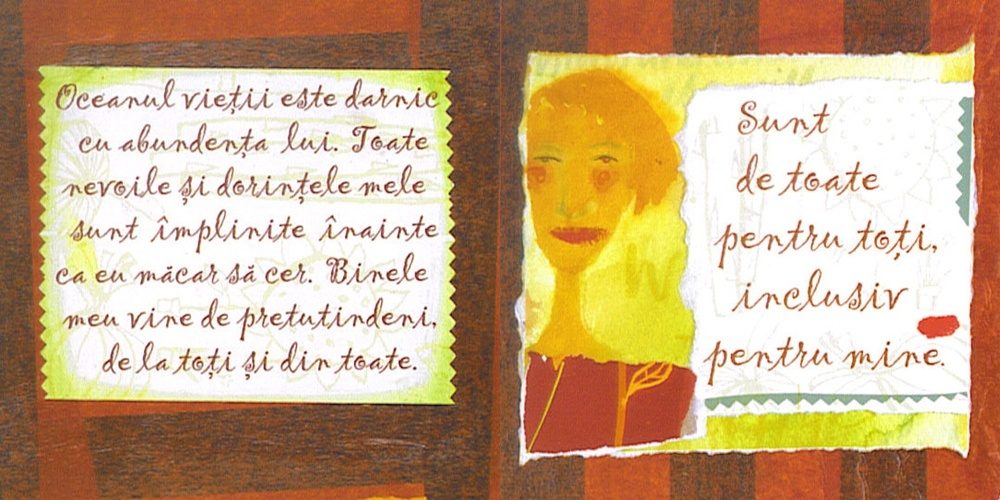 Oceanul vieții este darnic
cu abundența lui. Toate
nevoile și dorințele mele
sunt împlinite înainte
ca eu măcar să cer. Binele
meu vine de pretutindeni,
de la toți și din toate.
Sunt
de toate
pentru toți,
inclusiv
pentru mine.